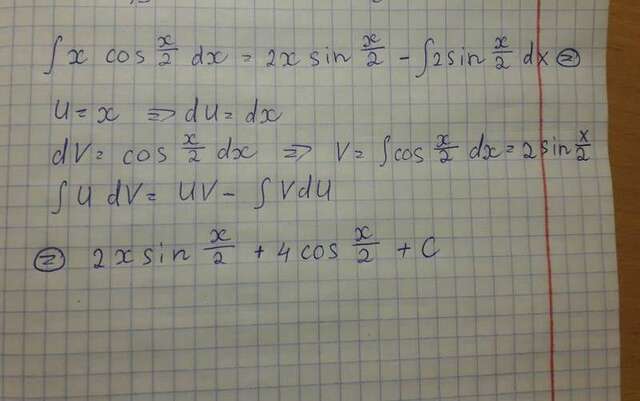 ∫ x cos x/2 dx = 2x sin x/2 - ∫2 sin x/2 dx ⊜
U = x ⇒ dU = dx
dV = cos x/2 dx ⇒ V = ∫cos x/2 dx = 2 sin x/2
∫ U dV = UV - ∫ V dU
⊜ 2x sin x/2 + 4 cos x/2 + C